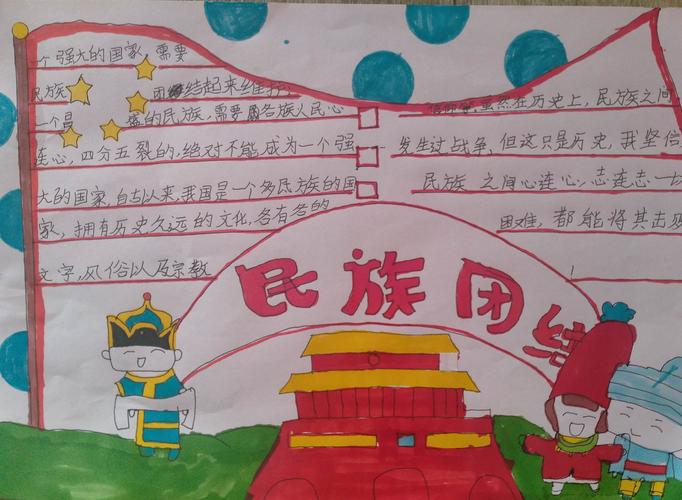 个强大的国家,需要
民族 团结起来维护
一个昌 盛的民族,需要各族人民心
连心,四分五裂的,绝对不能成为一个强
大的国家,自古以来,我国是一个多民族的国
家,拥有历史久远的文化,各有各的
文字,风俗以及宗教
虽然在历史上,民族之间
发生过战争,但这只是历史,我坚信
民族 之间心连心,志连志一
困难,都能将其击
民族团结